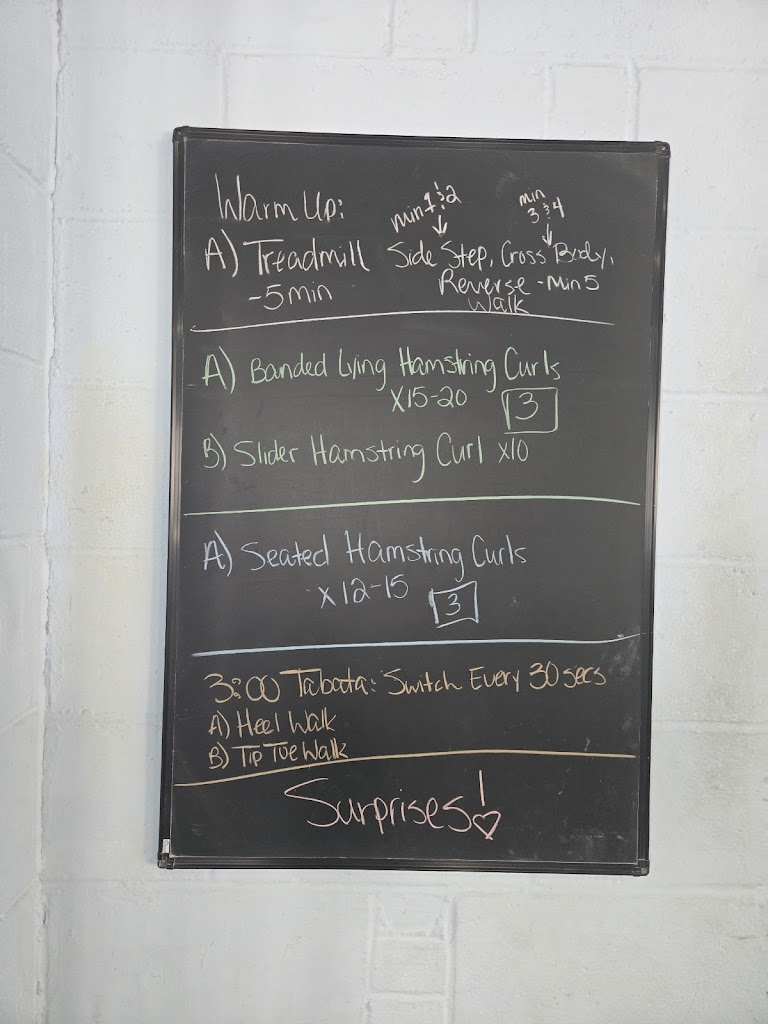 Warm Up:
min 1 & 2
min 3 & 4
A) Treadmill Side Step, Cross Body,
-5min Reverse -Min 5
Walk
A) Banded Lying Hamstring Curls
X15-20 3
B) Slider Hamstring Curl x10
A) Seated Hamstring Curls
x12-15 3
3:00 Tabata: Switch Every 30 secs
A) Heel Walk
B) Tip Toe Walk
Surprises!